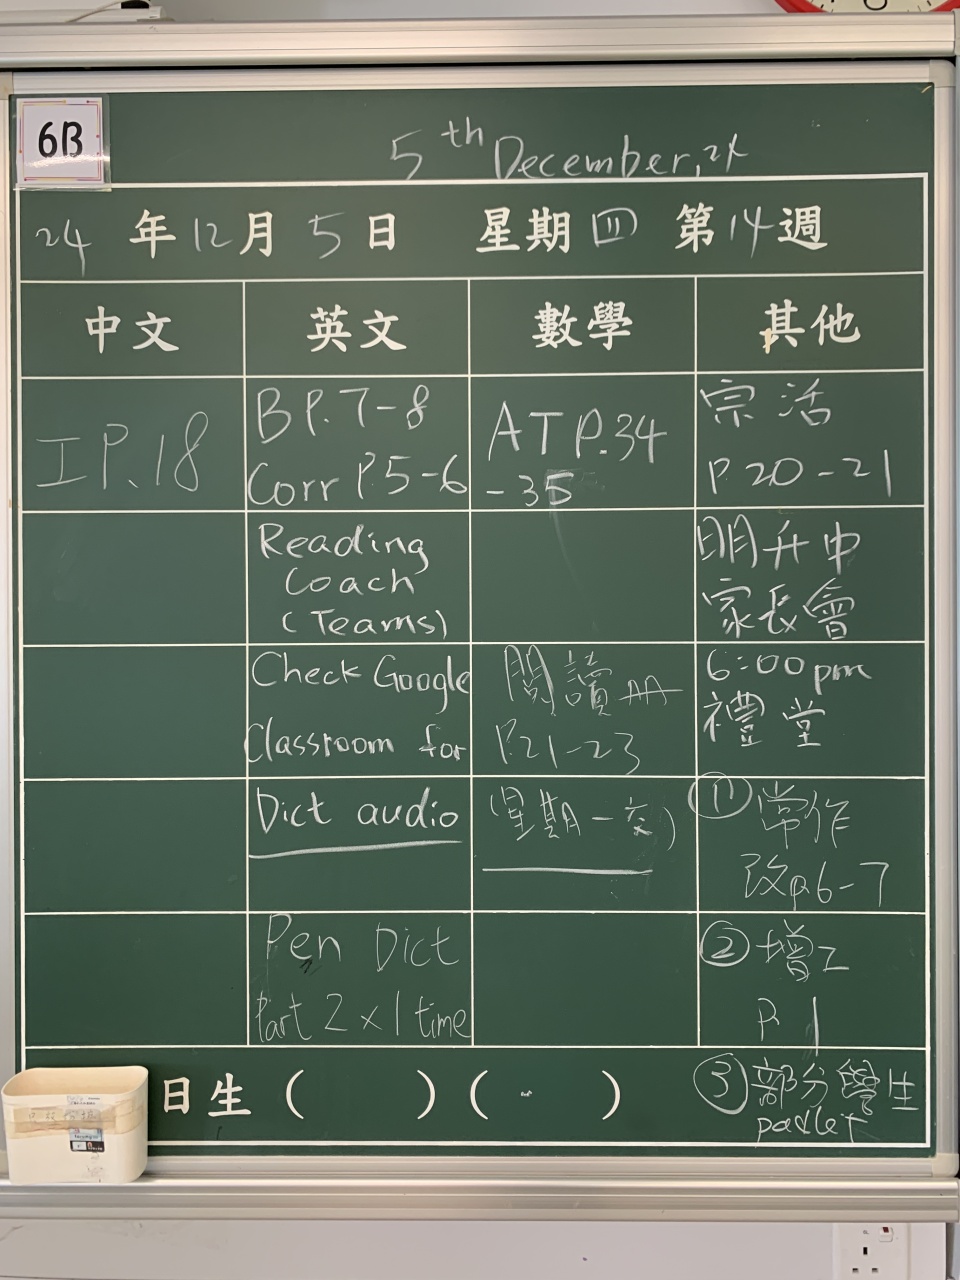 6B
5th December, 24
24 年 12 月 5 日 星期 四 第 14 週
中文
英文
數學
其他
I P.18
B P.7-8
Corr P.5-6
Reading
Coach
(Teams)
Check Google
Classroom for
Dict audio
Pen Dict
Part 2 x 1 time
A T P.34
-35
閱讀冊
P.21-23
(星期一交)
宗活
P.20-21
明升中
家長會
6:00pm
禮堂
① 常作
改P.6-7
② 增工
P.1
③ 部分學生
padlet
日生 ( ) ( )